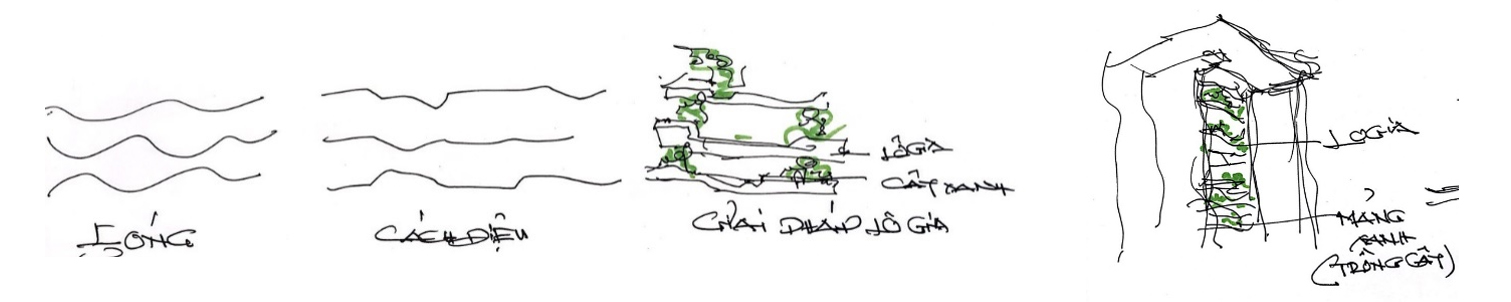 SÓNG
CÁCH ĐIỆU
LÔGIA
CÂY XANH
GIẢI PHÁP LÔ GIA
LOGIA
MẢNG
XANH
(TRỒNG CÂY)